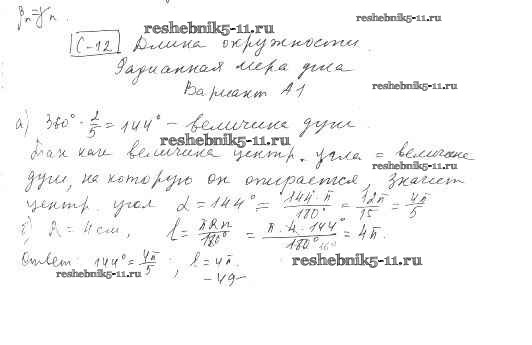 reshebnik5-11.ru
reshebnik5-11.ru
С-12 Длина окружности.
Радианная мера угла
reshebnik5-11.ru
Вариант А1
а) 360° · 2/5 = 144° – величина дуги.
reshebnik5-11.ru
Так как величина центр. угла = величине
дуги, на которую он опирается, Значит
центр. угол α = 144° = 144·π/180° = 12π/15 = 4π/5
б) R = 4 см, l = πRn/180° = π·4·144°/180° = 4π.
Ответ: 144° = 4π/5 ; l = 4π.
reshebnik5-11.ru
reshebnik5-11.ru
– 49